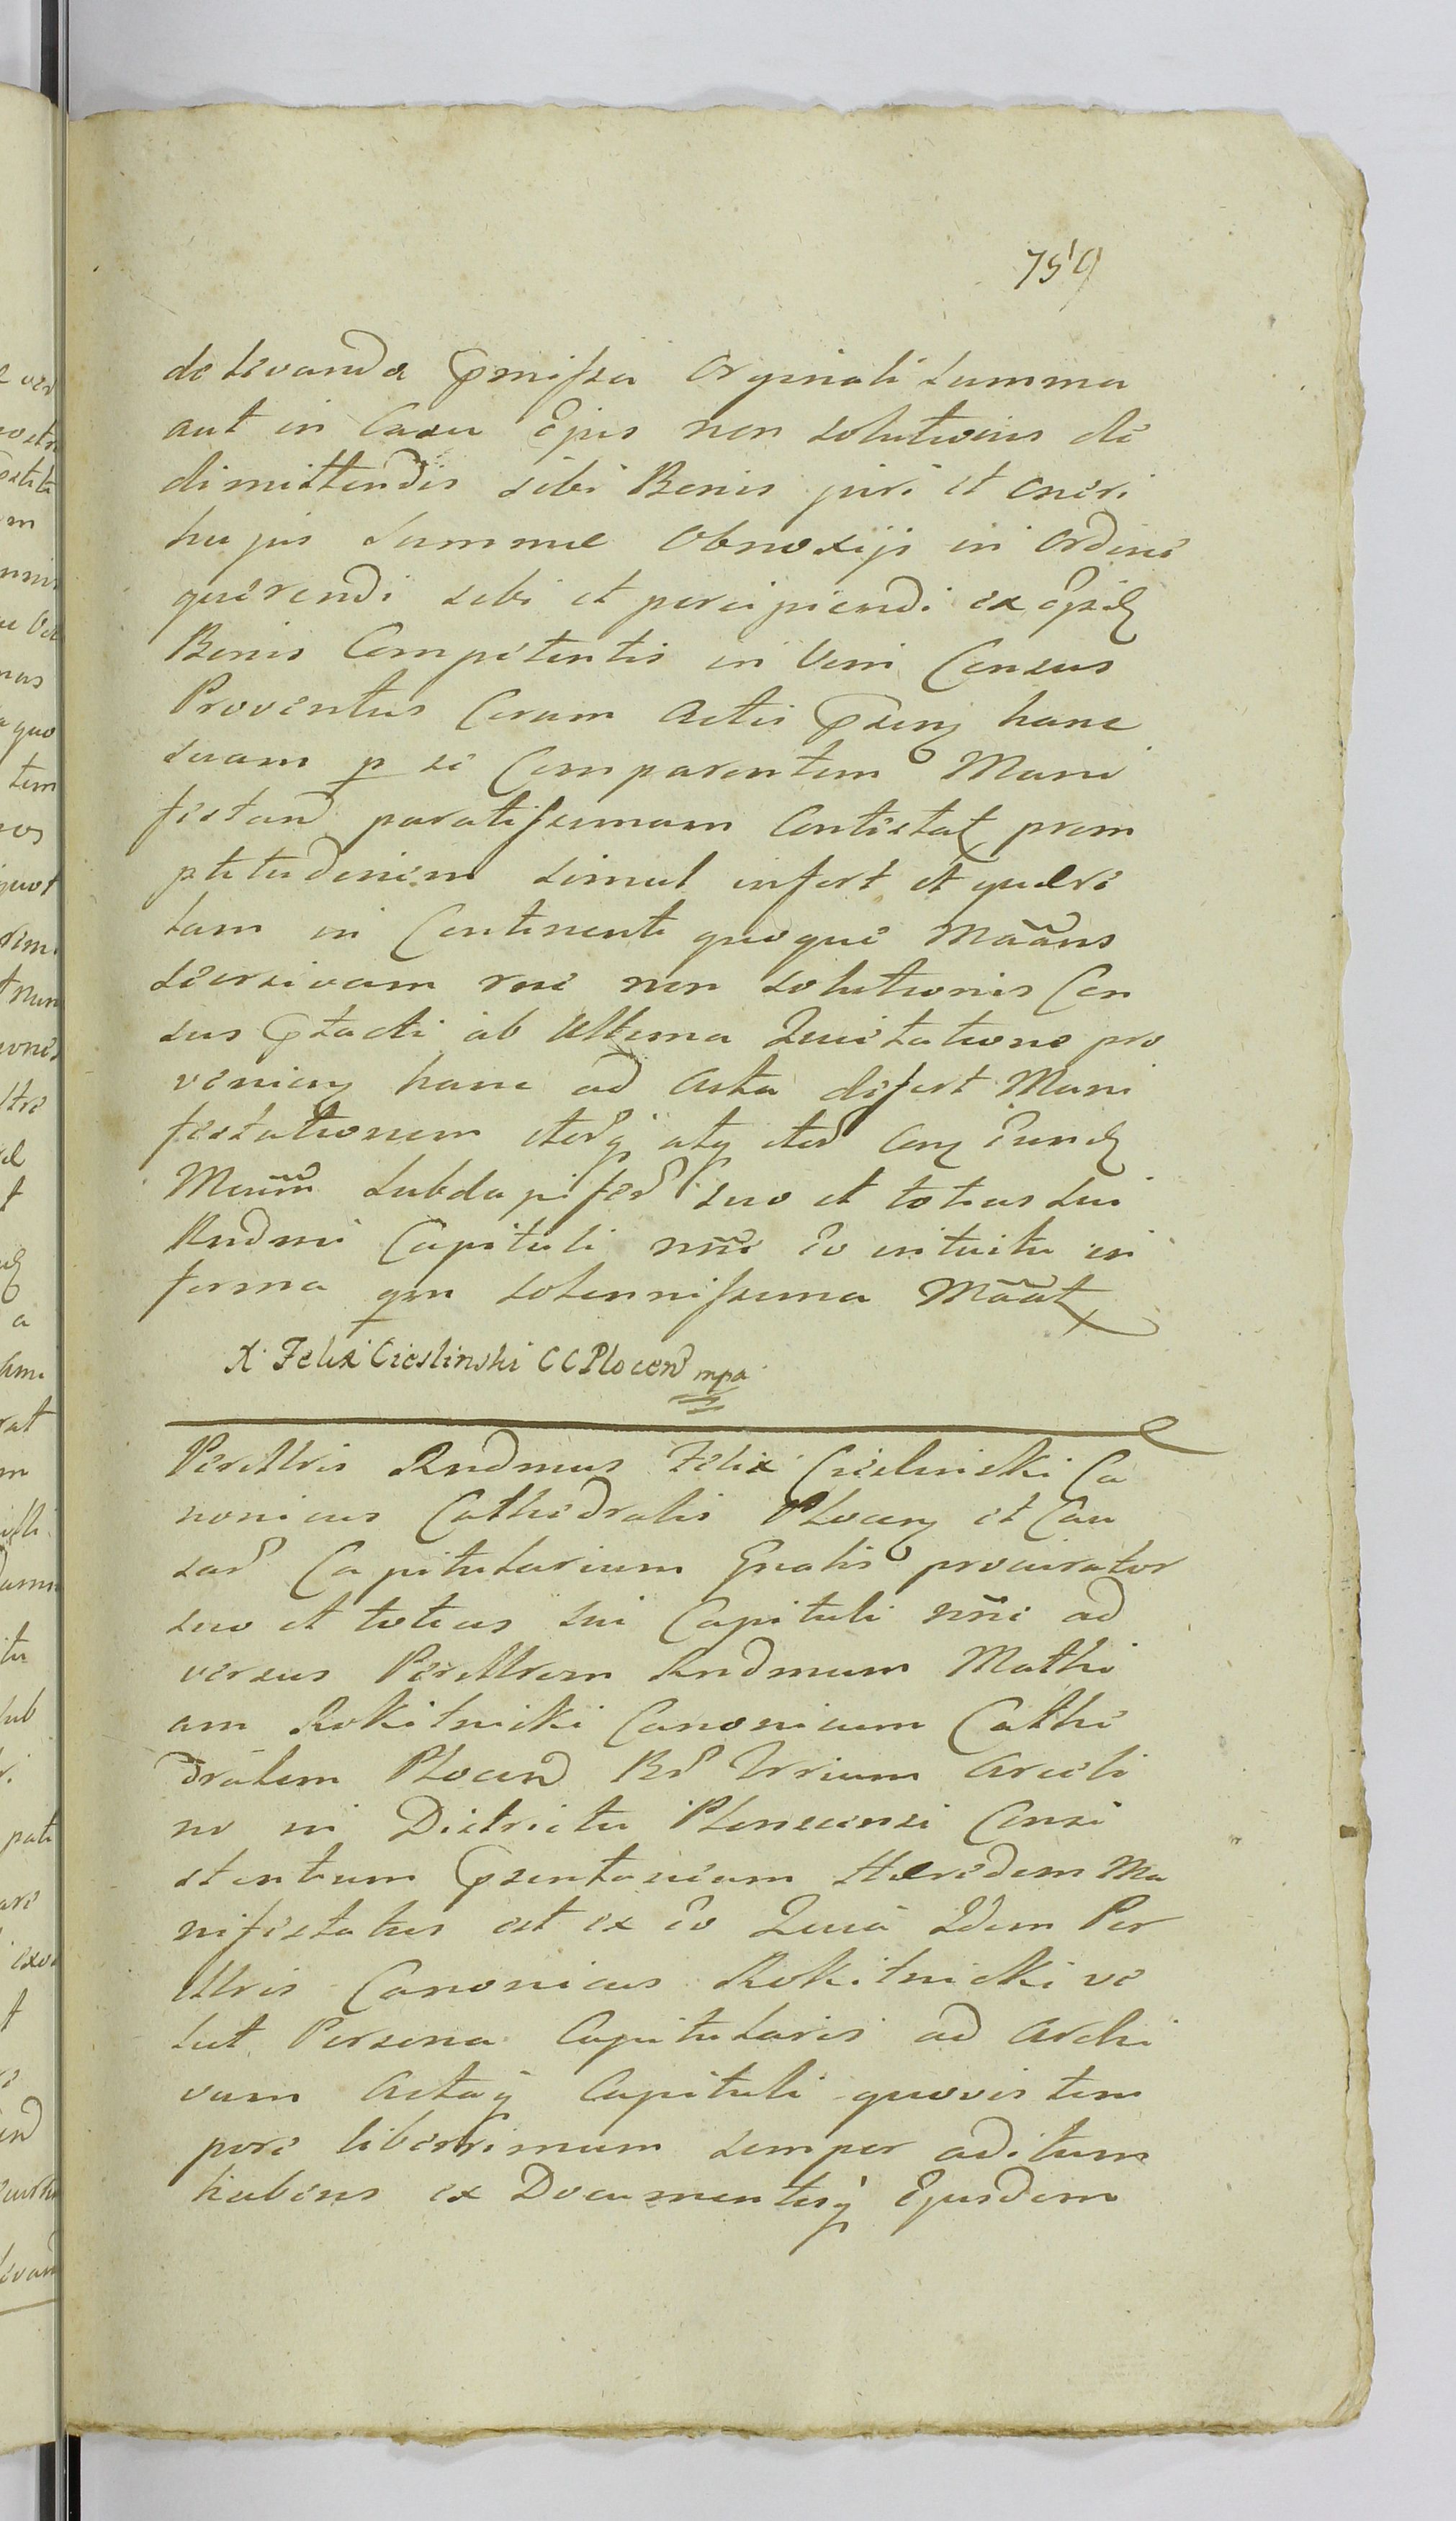 759
de levanda pmissa Orginali Summa
aut in Casu Ejus non Solutionis de
dimittendis sibi Bonis juri et oneri
hujus Summæ Obnoxijs in Ordine
querendi sibi et percipiendi ex
Bonis Competentis in Vim Census
Proventus Coram Actis pseng hanc
suam p se Comparentem Mani
festand paratissimam Contestat prom
ptitudinem simul infert et quære
lam in Continenti quoque Māāns
seersivam rne non Solutionis Cen
sus ptacti ab Ultima Quietatione pro
venieng hanc ad Acta defert Mani
festationem iterqʒ atqʒ iter
Subdapifer suo et totius sui
Rndmi Capituli nn̄e Eo intuitu in
forma qm solennissima Māāt
X Felix Cieslinski CC Plocen mpa
Perillris Rndmus Felix Cieslinski Ca
nonicus Cathedralis Ploceng et Cau
sar Capitularium Gnalis procurator
suo et totius sui Capituli nn̄e ad
versus Perillrem Rndmum Mathi
am Rokitnicki Canonicum Cathe
dralem Plocen Br Vrrium Arceli
no in Districtu Plonscensi Consi
stentium psentaneum Hæredem Ma
nifestatus est ex Eo Quia Idem Per
illris Canonicus Rokitnicki ve
lut Persona Capitularis ad Archi
vum Actaqʒ Capituli quovis tem
pore liberrimum semper aditum
habens ex Documentisqʒ Ejusdem